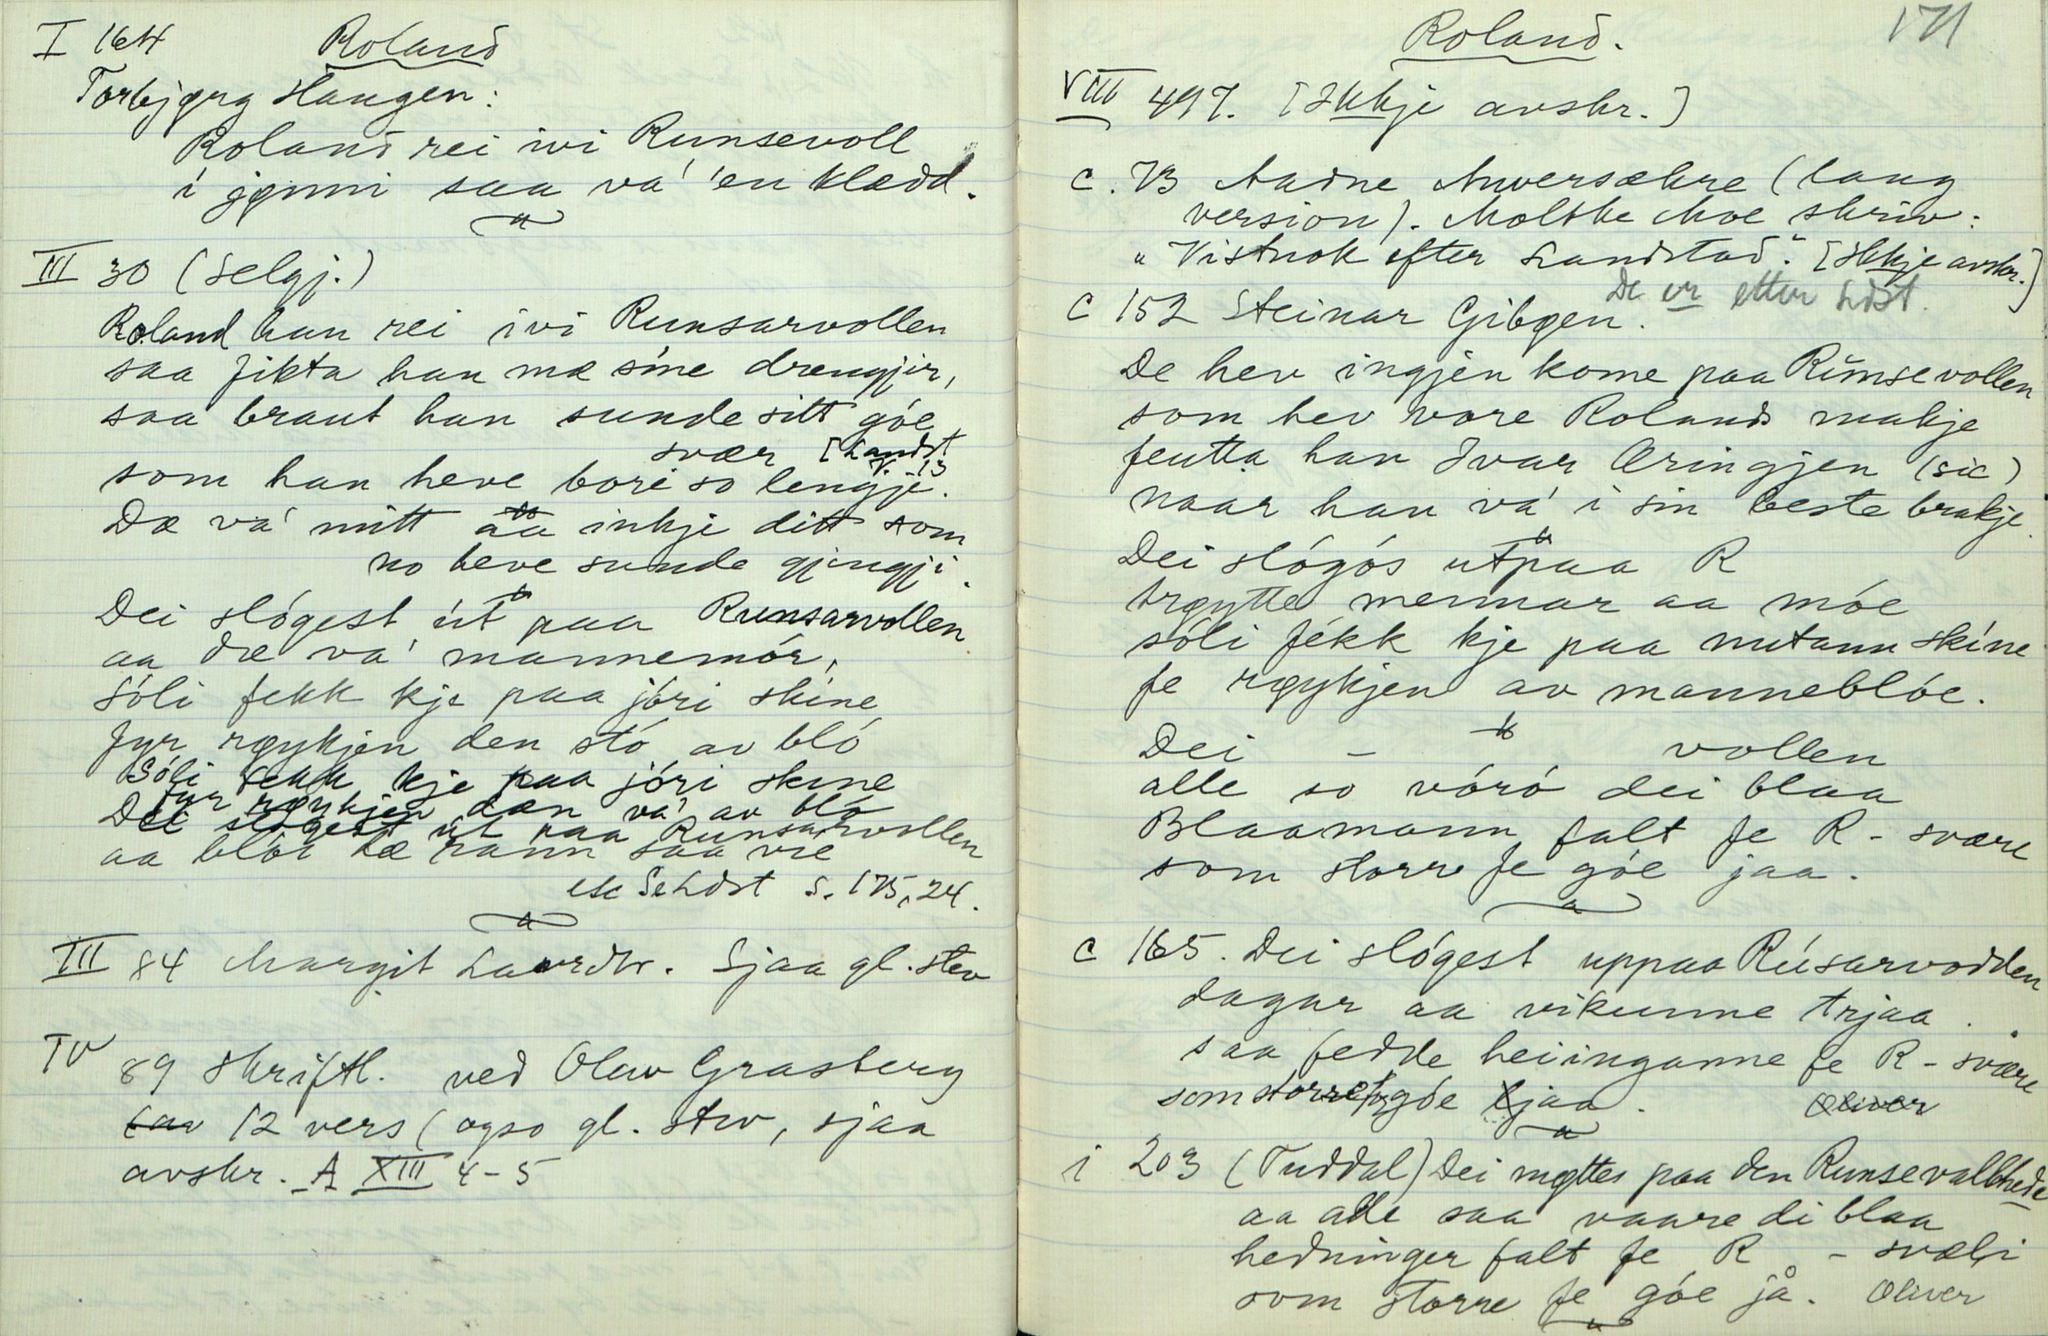 I 164 Roland
Torbjørg Haugen:
Roland rei ivi Runsevoll
i jønni saa va' 'en klædd.
III 30 (Selgj.)
Roland han rei ivi Runsarvollen
saa fikta han mæ sine drengjir,
saa braut han sunde sitt góe
svær [Landst
v. 13
som han heve bori so lengje.
Dæ va' mitt aa inkje ditt som
no heve sunde gjingji.
Dei slógest út paa Runsarvollen
aa dæ va' mannemór,
Sóli fekk kje paa jóri skine
fyr røykjen den stó av bló
Sóli fekk kje paa jóri skine
fyr røykjen dæn va' av bló
Dei slógest út paa Runsarvollen
aa blói tæ rann saa vie
etc Se Ldst S. 175, 24.
III 84 Margit Laurdtr. Sjaa gl. stev
IV 89 Skriftl. ved Olav Grasberg
12 vers (ogso gl. stev, sjaa
avskr. A XIII 4-5
171
Roland.
VIII 497. [Ikkje avskr.]
C. 73 Aadne Anversækre (lang
version). Moltke Moe skriv:
"Vistnok efter Landstad". [Ikkje avskr.]
De er etter Ldst.
C 152 Steinar Gibøen.
De hev ingjen kome paa Rumsevollen
som hev vore Rolands makje
feutta han Ivar Æringjen (sic)
naar han va' i sin beste brakje.
Dei slógós utpaa R
trøytte mennar aa móe
sóli fékk kje paa nutann skíne
fe røykjen av manneblóe.
Dei - vollen
alle so vóró dei blaa
Blaamann falt fe R - svære
som storre fe góe jaa.
C 165. Dei slógest uppaa Rúsarvodden
dagar aa vikunne trjaa.
saa fedde heiinganne fe R - svære
som storre fe góe ljaa. Oliver
i 203 (Tuddal) Dei møttes paa den Runsevallhede
aa alle saa vaare di blaa
hedninger falt fe R - sværi
som storre fe góe jå. Oliver